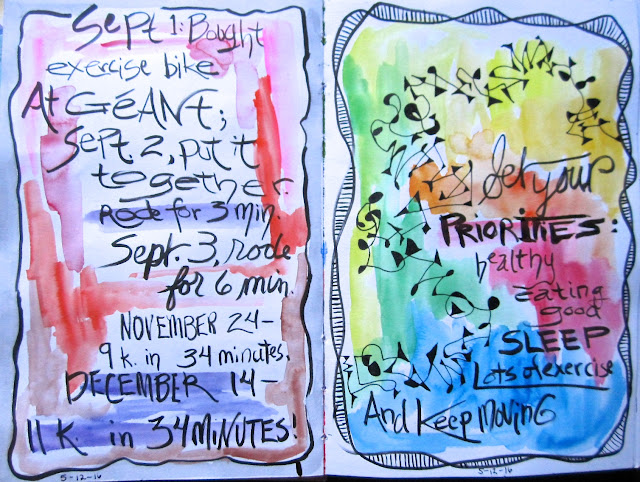 Sept 1: Bought
exercise bike
At GÉANT;
Sept 2, put it
together.
Rode for 3 min.
Sept. 3, rode
for 6 min.
NOVEMBER 24–
9 k. in 34 minutes.
DECEMBER 14–
11 K. in 34 MINUTES!
5-12-16
Set your
PRIORITIES:
healthy
eating
good
SLEEP
Lots of exercise
And Keep MOVING
5-12-16